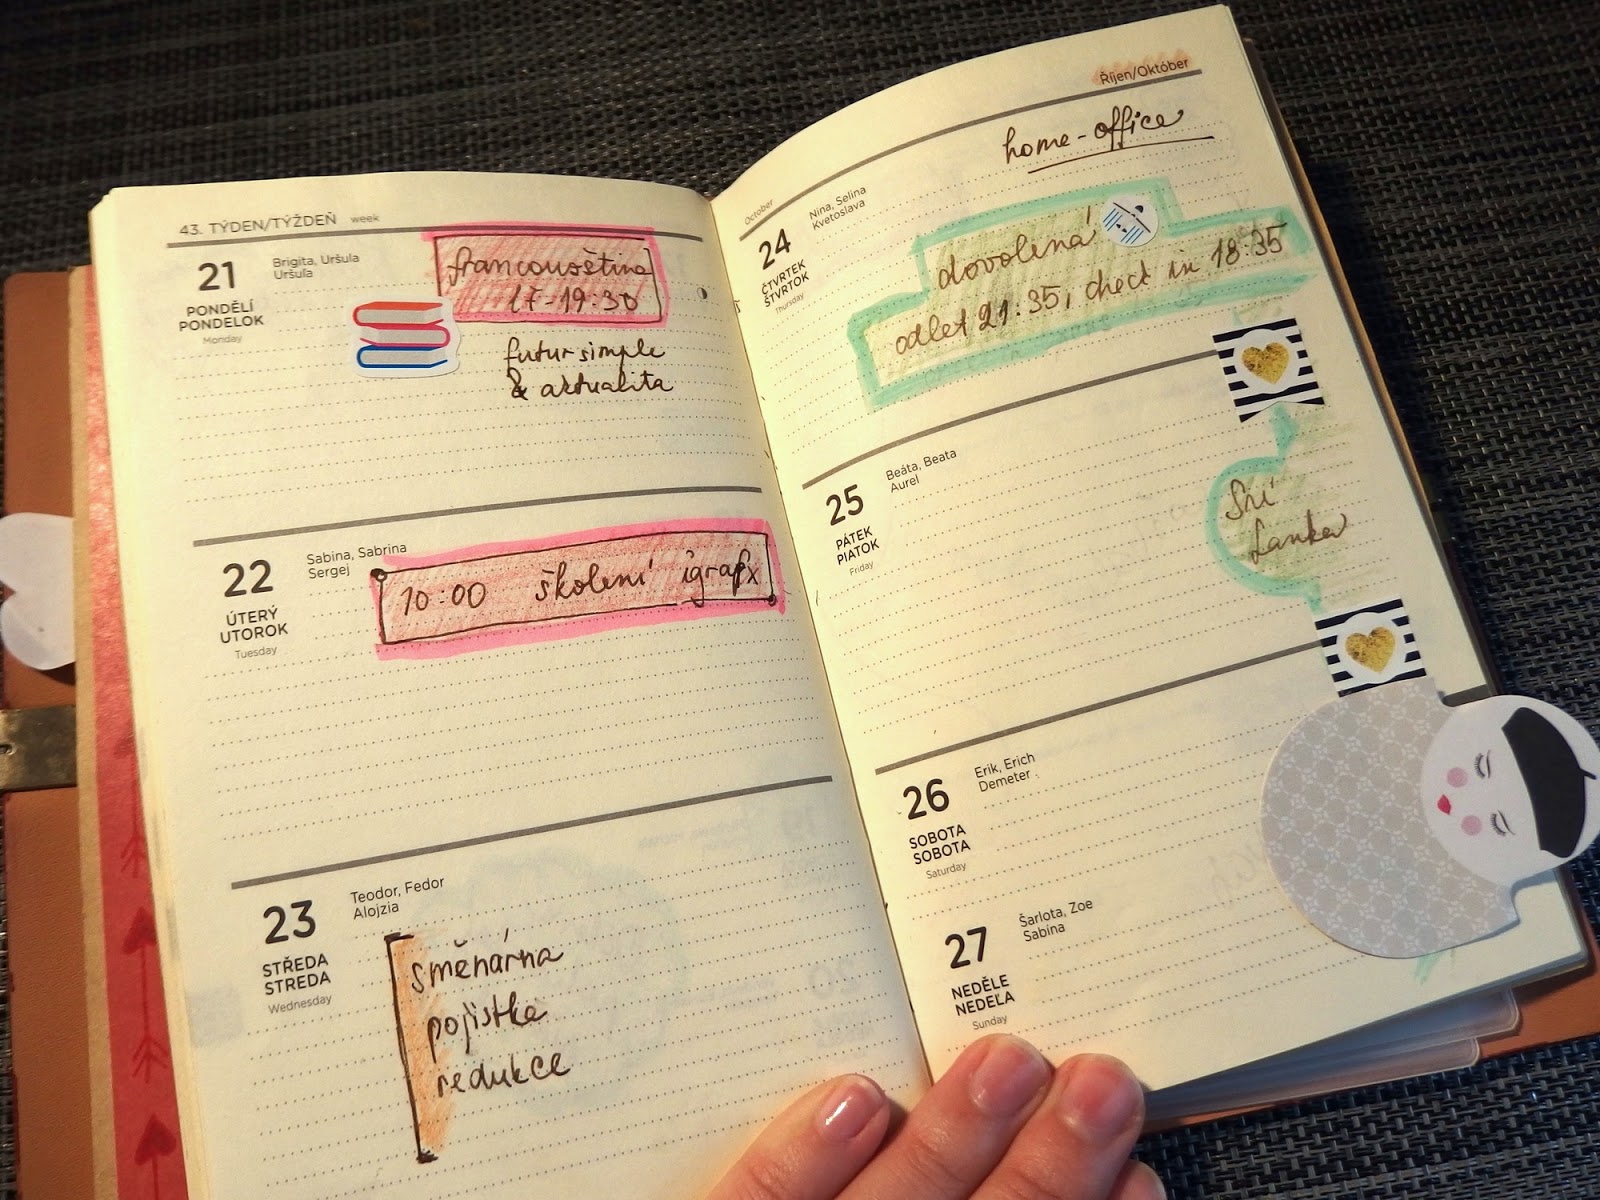 43. TÝDEN/TÝŽDEŇ week
21
PONDĚLÍ
PONDELOK
Monday
Brigita, Uršula
Uršuľa
francouzština
17-19:30
futur simple
& aktualita
22
ÚTERÝ
UTOROK
Tuesday
Sabina, Sabrina
Sergej
10:00 školení igrafx
23
STŘEDA
STREDA
Wednesday
Teodor, Fedor
Alojzia
směnárna
pojistka
redukce
October
Říjen/Október
home-office
24
ČTVRTEK
ŠTVRTOK
Thursday
Nina, Selina
Kvetoslava
dovolená
odlet 21:35, check in 18:35
25
PÁTEK
PIATOK
Friday
Beáta, Beata
Aurel
Srí
Lanka
26
SOBOTA
SOBOTA
Saturday
Erik, Erich
Demeter
27
NEDĚLE
NEDEĽA
Sunday
Šarlota, Zoe
Sabina